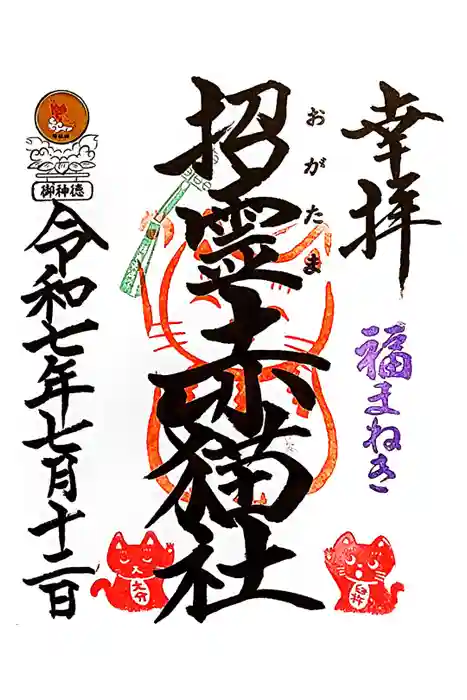 幸拝
福まねき
おがたま
招霊赤猫社
令和七年七月十二日
御神徳
大分
臼杵